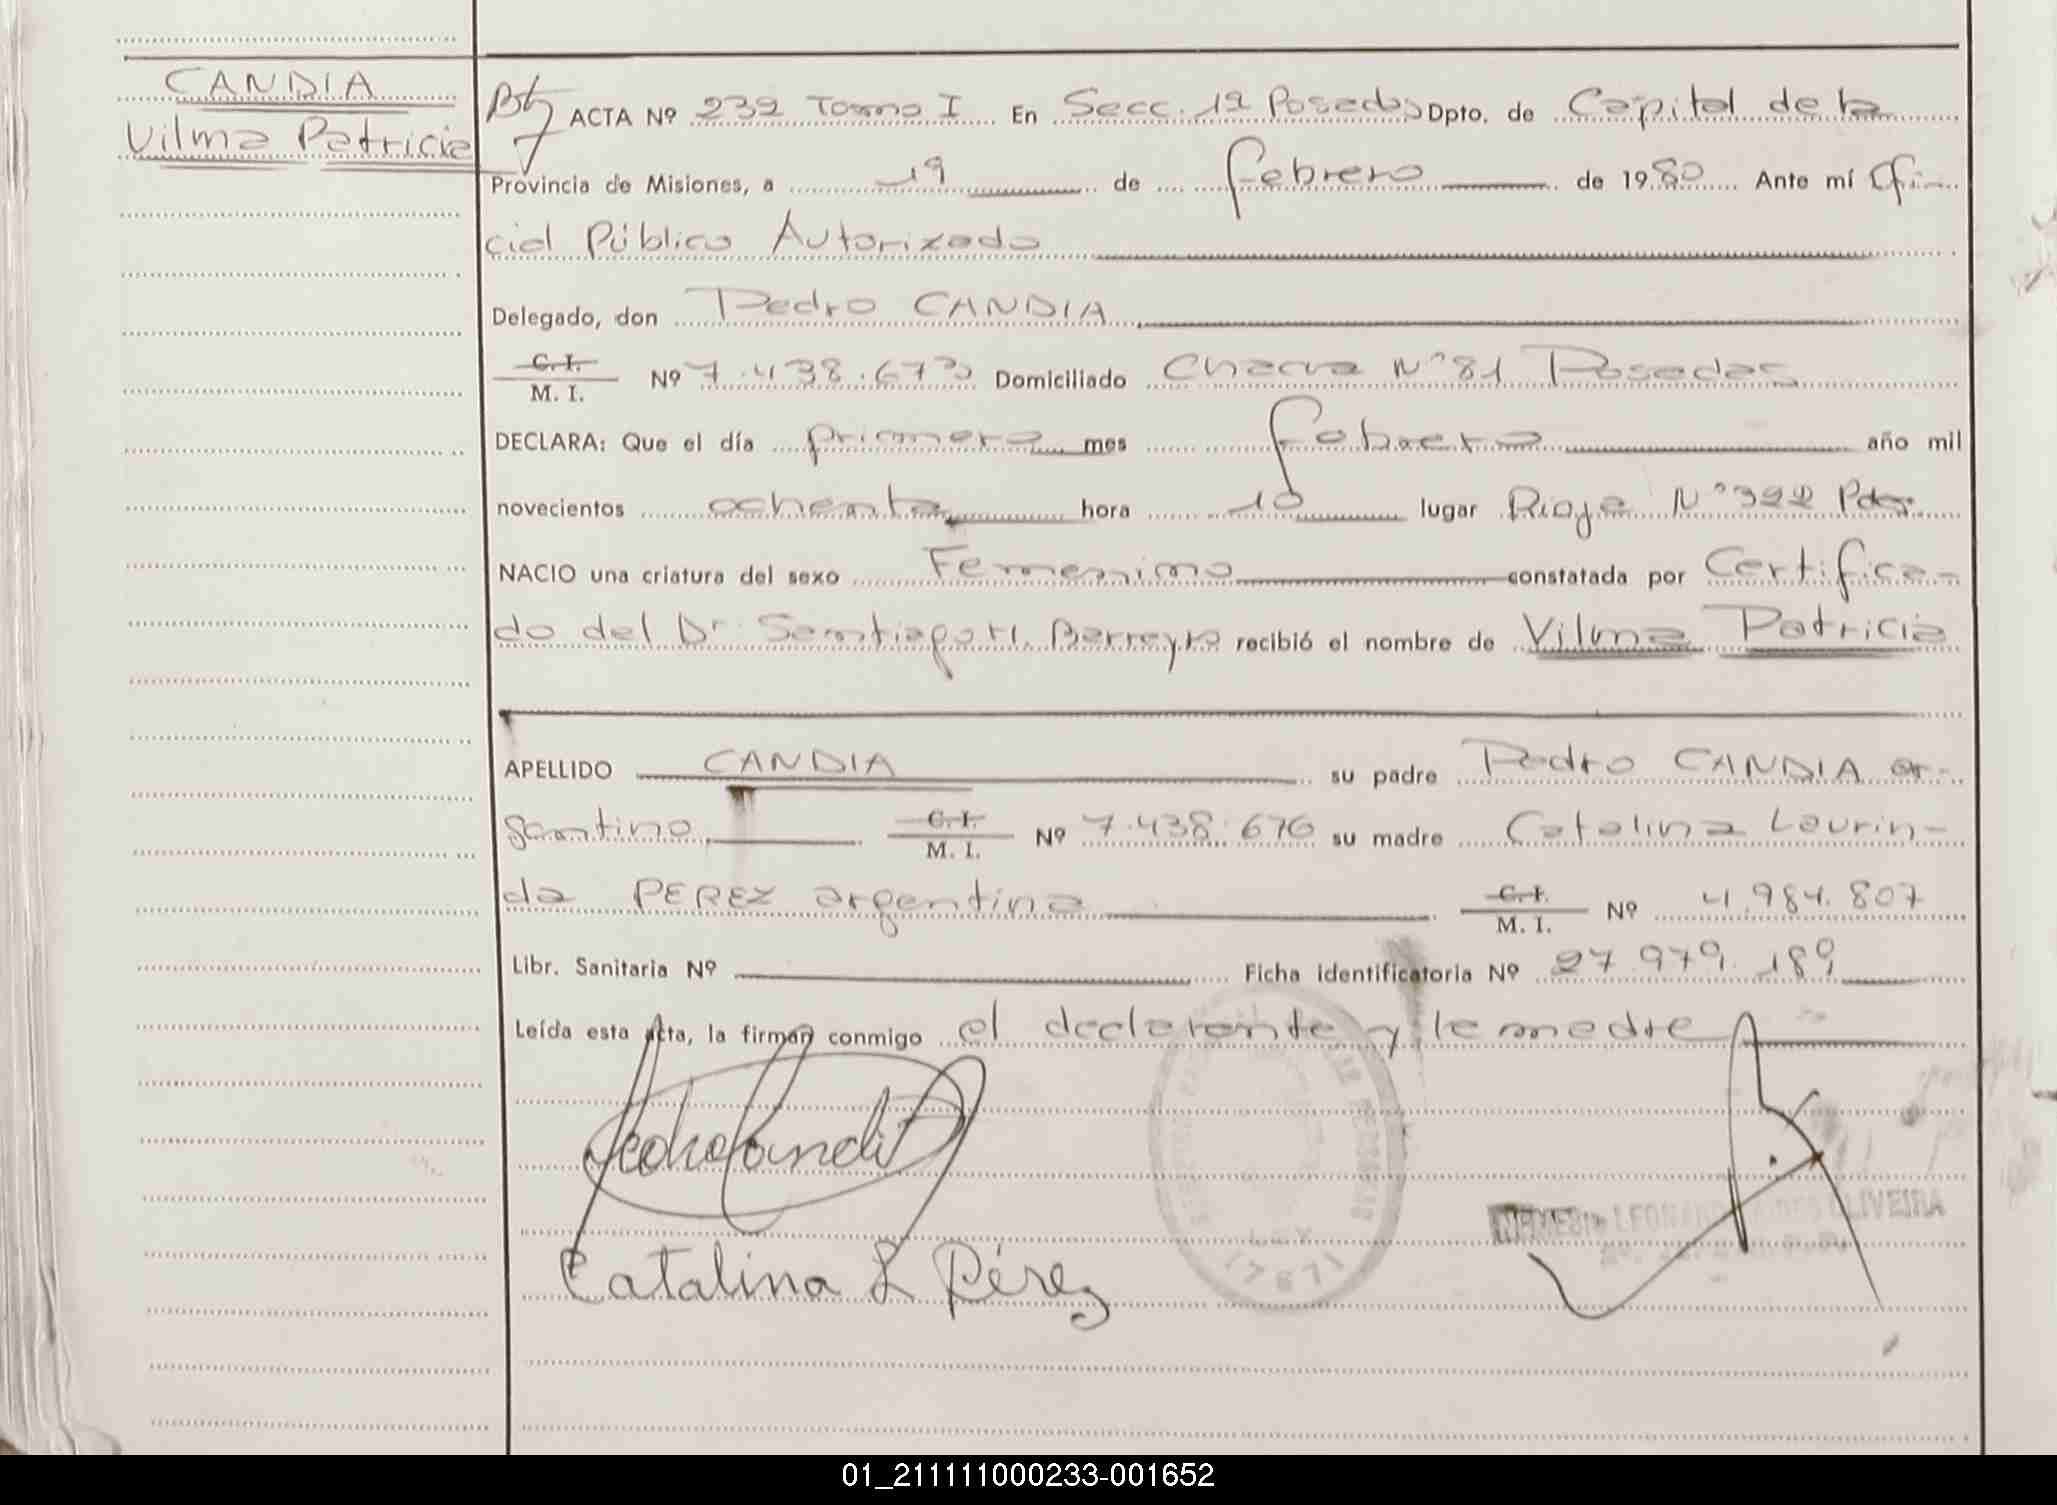 CANDIA
Vilma Patricia
ACTA Nº 239 Tomo I En Secc. 1ª Posadas Dpto. de Capital de la
Provincia de Misiones, a 19 de febrero de 1980 Ante mí Ofi-
cial Público Autorizado
Delegado, don Pedro CANDIA
C. I.
M. I. Nº 7.438.673 Domiciliado Chacra Nº 81 Posadas
DECLARA: Que el día primero mes febrero año mil
novecientos ochenta hora 10 lugar Rioja Nº 322 Pdas.
NACIO una criatura del sexo Femenino constatada por Certifica-
do del Dr. Barreyro recibió el nombre de Vilma Patricia
APELLIDO CANDIA su padre Pedro CANDIA ar-
gentino C. I.
M. I. Nº 7.438.676 su madre Catalina Laurin-
da PEREZ argentina C. I.
M. I. Nº 4.984.807
Libr. Sanitaria Nº Ficha identificatoria Nº 27.979.189
Leída esta acta, la firman conmigo el declarante y la madre
Pedro Candia
Catalina L Pérez
LEY
17671
OLIVEIRA
01_211111000233-001652